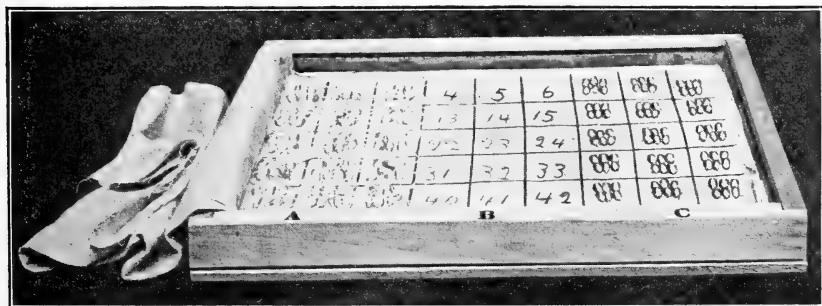 4 5 6
13 14 15
22 23 24
31 32 33
40 41 42
A B C